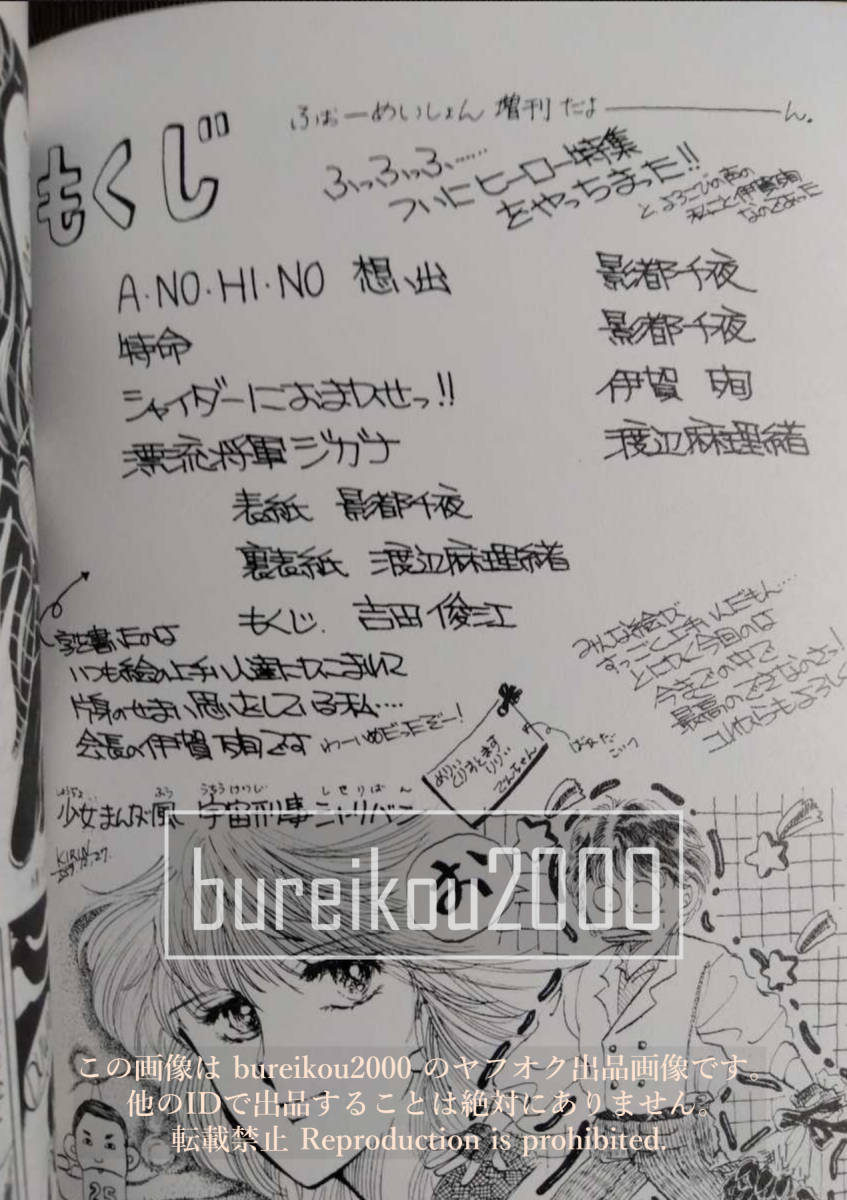 もくじ
ふぉーめいしょん 増刊 だよ――――ん。
ふっふっふ……
ついにヒーロー特集
をやっちまった!!
と、よろこびの声の
私こと伊賀 珣
なのであった
A・NO・HI・NO 想い出 影都千夜
特命 影都千夜
シャイダーにおまかせっ!! 伊賀 珣
漂流将軍ジガナ 渡辺麻理緒
表紙 影都千夜
裏表紙 渡辺麻理緒
もくじ. 吉田 俊江
字を書いたのは
いつも絵の上手い人達にかこまれて
片身のせまい思いをしている私…
会長の伊賀 珣です わーいめだったぞー!
みんな絵が
すっごく上手いんだもん…
とにかく今回のは
今までの中で
最高のできなのさっ!
これからもよろしく
少女まんが風 宇宙刑事シャリバン
しょうじょ ふう うちゅうけいじ しゃりばん
KIRIN
お
bureikou2000
この画像は bureikou2000 のヤフオク出品画像です。
他のIDで出品することは絶対にありません。
転載禁止 Reproduction is prohibited.